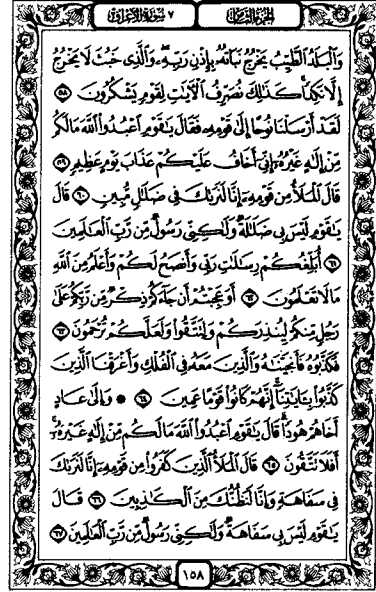 الجزء الثامن
٧ سورة الأعراف
وَالْبَلَدُ الطَّيِّبُ يَخْرُجُ نَبَاتُهُ بِإِذْنِ رَبِّهِ وَالَّذِي خَبُثَ لَا يَخْرُجُ
إِلَّا نَكِدًا كَذَٰلِكَ نُصَرِّفُ الْآيَاتِ لِقَوْمٍ يَشْكُرُونَ ٥٨
لَقَدْ أَرْسَلْنَا نُوحًا إِلَىٰ قَوْمِهِ فَقَالَ يَٰقَوْمِ اعْبُدُوا اللَّهَ مَا لَكُم
مِّنْ إِلَٰهٍ غَيْرُهُ إِنِّي أَخَافُ عَلَيْكُمْ عَذَابَ يَوْمٍ عَظِيمٍ ٥٩
قَالَ الْمَلَأُ مِن قَوْمِهِ إِنَّا لَنَرَىٰكَ فِي ضَلَٰلٍ مُّبِينٍ ٦٠ قَالَ
يَٰقَوْمِ لَيْسَ بِي ضَلَٰلَةٌ وَلَٰكِنِّي رَسُولٌ مِّن رَّبِّ الْعَٰلَمِينَ
٦١ أُبَلِّغُكُمْ رِسَٰلَٰتِ رَبِّي وَأَنصَحُ لَكُمْ وَأَعْلَمُ مِنَ اللَّهِ
مَا لَا تَعْلَمُونَ ٦٢ أَوَعَجِبْتُمْ أَن جَاءَكُمْ ذِكْرٌ مِّن رَّبِّكُمْ عَلَىٰ
رَجُلٍ مِّنكُمْ لِيُنذِرَكُمْ وَلِتَتَّقُوا وَلَعَلَّكُمْ تُرْحَمُونَ ٦٣
فَكَذَّبُوهُ فَأَنجَيْنَٰهُ وَالَّذِينَ مَعَهُ فِي الْفُلْكِ وَأَغْرَقْنَا الَّذِينَ
كَذَّبُوا بِـَٔايَٰتِنَا إِنَّهُمْ كَانُوا قَوْمًا عَمِينَ ٦٤ • وَإِلَىٰ عَادٍ
أَخَاهُمْ هُودًا قَالَ يَٰقَوْمِ اعْبُدُوا اللَّهَ مَا لَكُم مِّنْ إِلَٰهٍ غَيْرُهُ
أَفَلَا تَتَّقُونَ ٦٥ قَالَ الْمَلَأُ الَّذِينَ كَفَرُوا مِن قَوْمِهِ إِنَّا لَنَرَىٰكَ
فِي سَفَاهَةٍ وَإِنَّا لَنَظُنُّكَ مِنَ الْكَٰذِبِينَ ٦٦ قَالَ
يَٰقَوْمِ لَيْسَ بِي سَفَاهَةٌ وَلَٰكِنِّي رَسُولٌ مِّن رَّبِّ الْعَٰلَمِينَ ٦٧
١٥٨